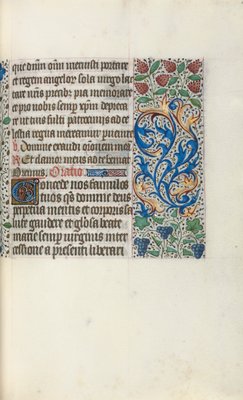 que dñm qm̃ meruisti portare
et regem angelor sola virgo lac
tare nr̃is precib pia memorare
et pro nobis semp xp̃m depreca
ut tuis fulti patrocinijs ad ce
lestia regna mereamur
Domine exaudi or̃onem mea
Et clamor meus ad te veniat
Oremus. Oratio.
Concede nos famulos
tuos qs̃ domine deus
perpetua mentis et corporis sa
lute gaudere et gl̃osa beate
marie semp virginis inter
cessione a presenti liberari